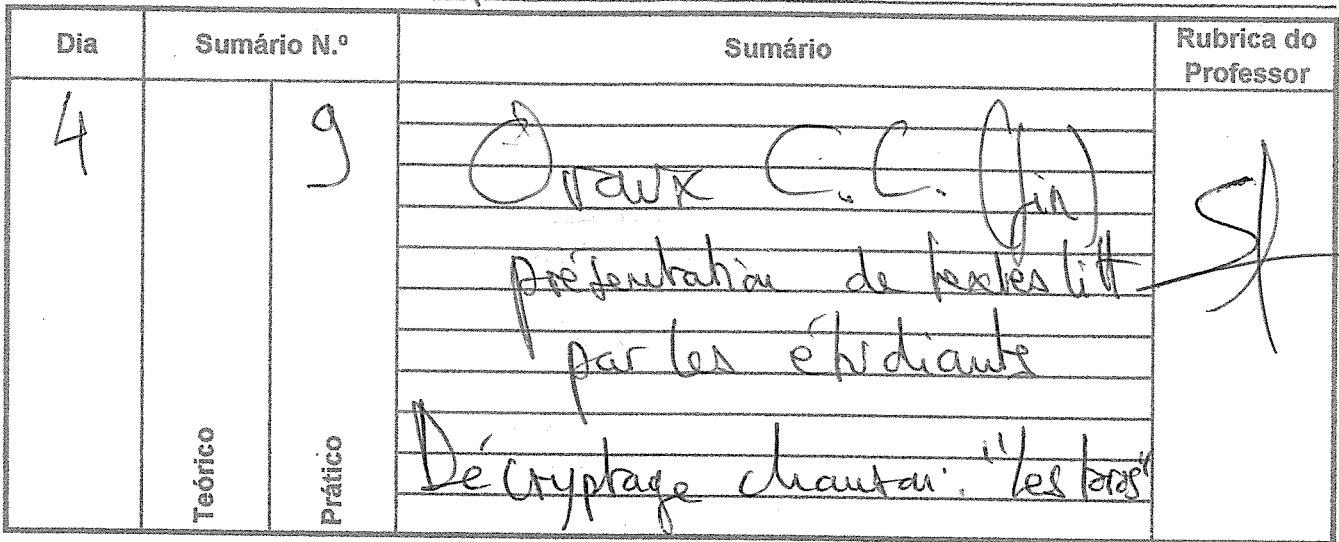 Dia Sumário N.º Sumário Rubrica do Professor
4 9 Oraux C.C. (fin)
présentation de textes litt
par les étudiants
Décryptage chanson: "les
Teórico Prático